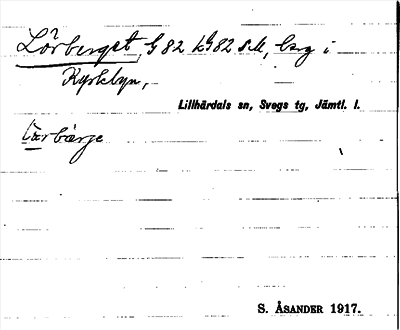 Lörberget, G 82 kG 82 s M, berg i
Kyrkbyn,
Lillhärdals sn, Svegs tg, Jämtl. l.
S. ÅSANDER 1917.